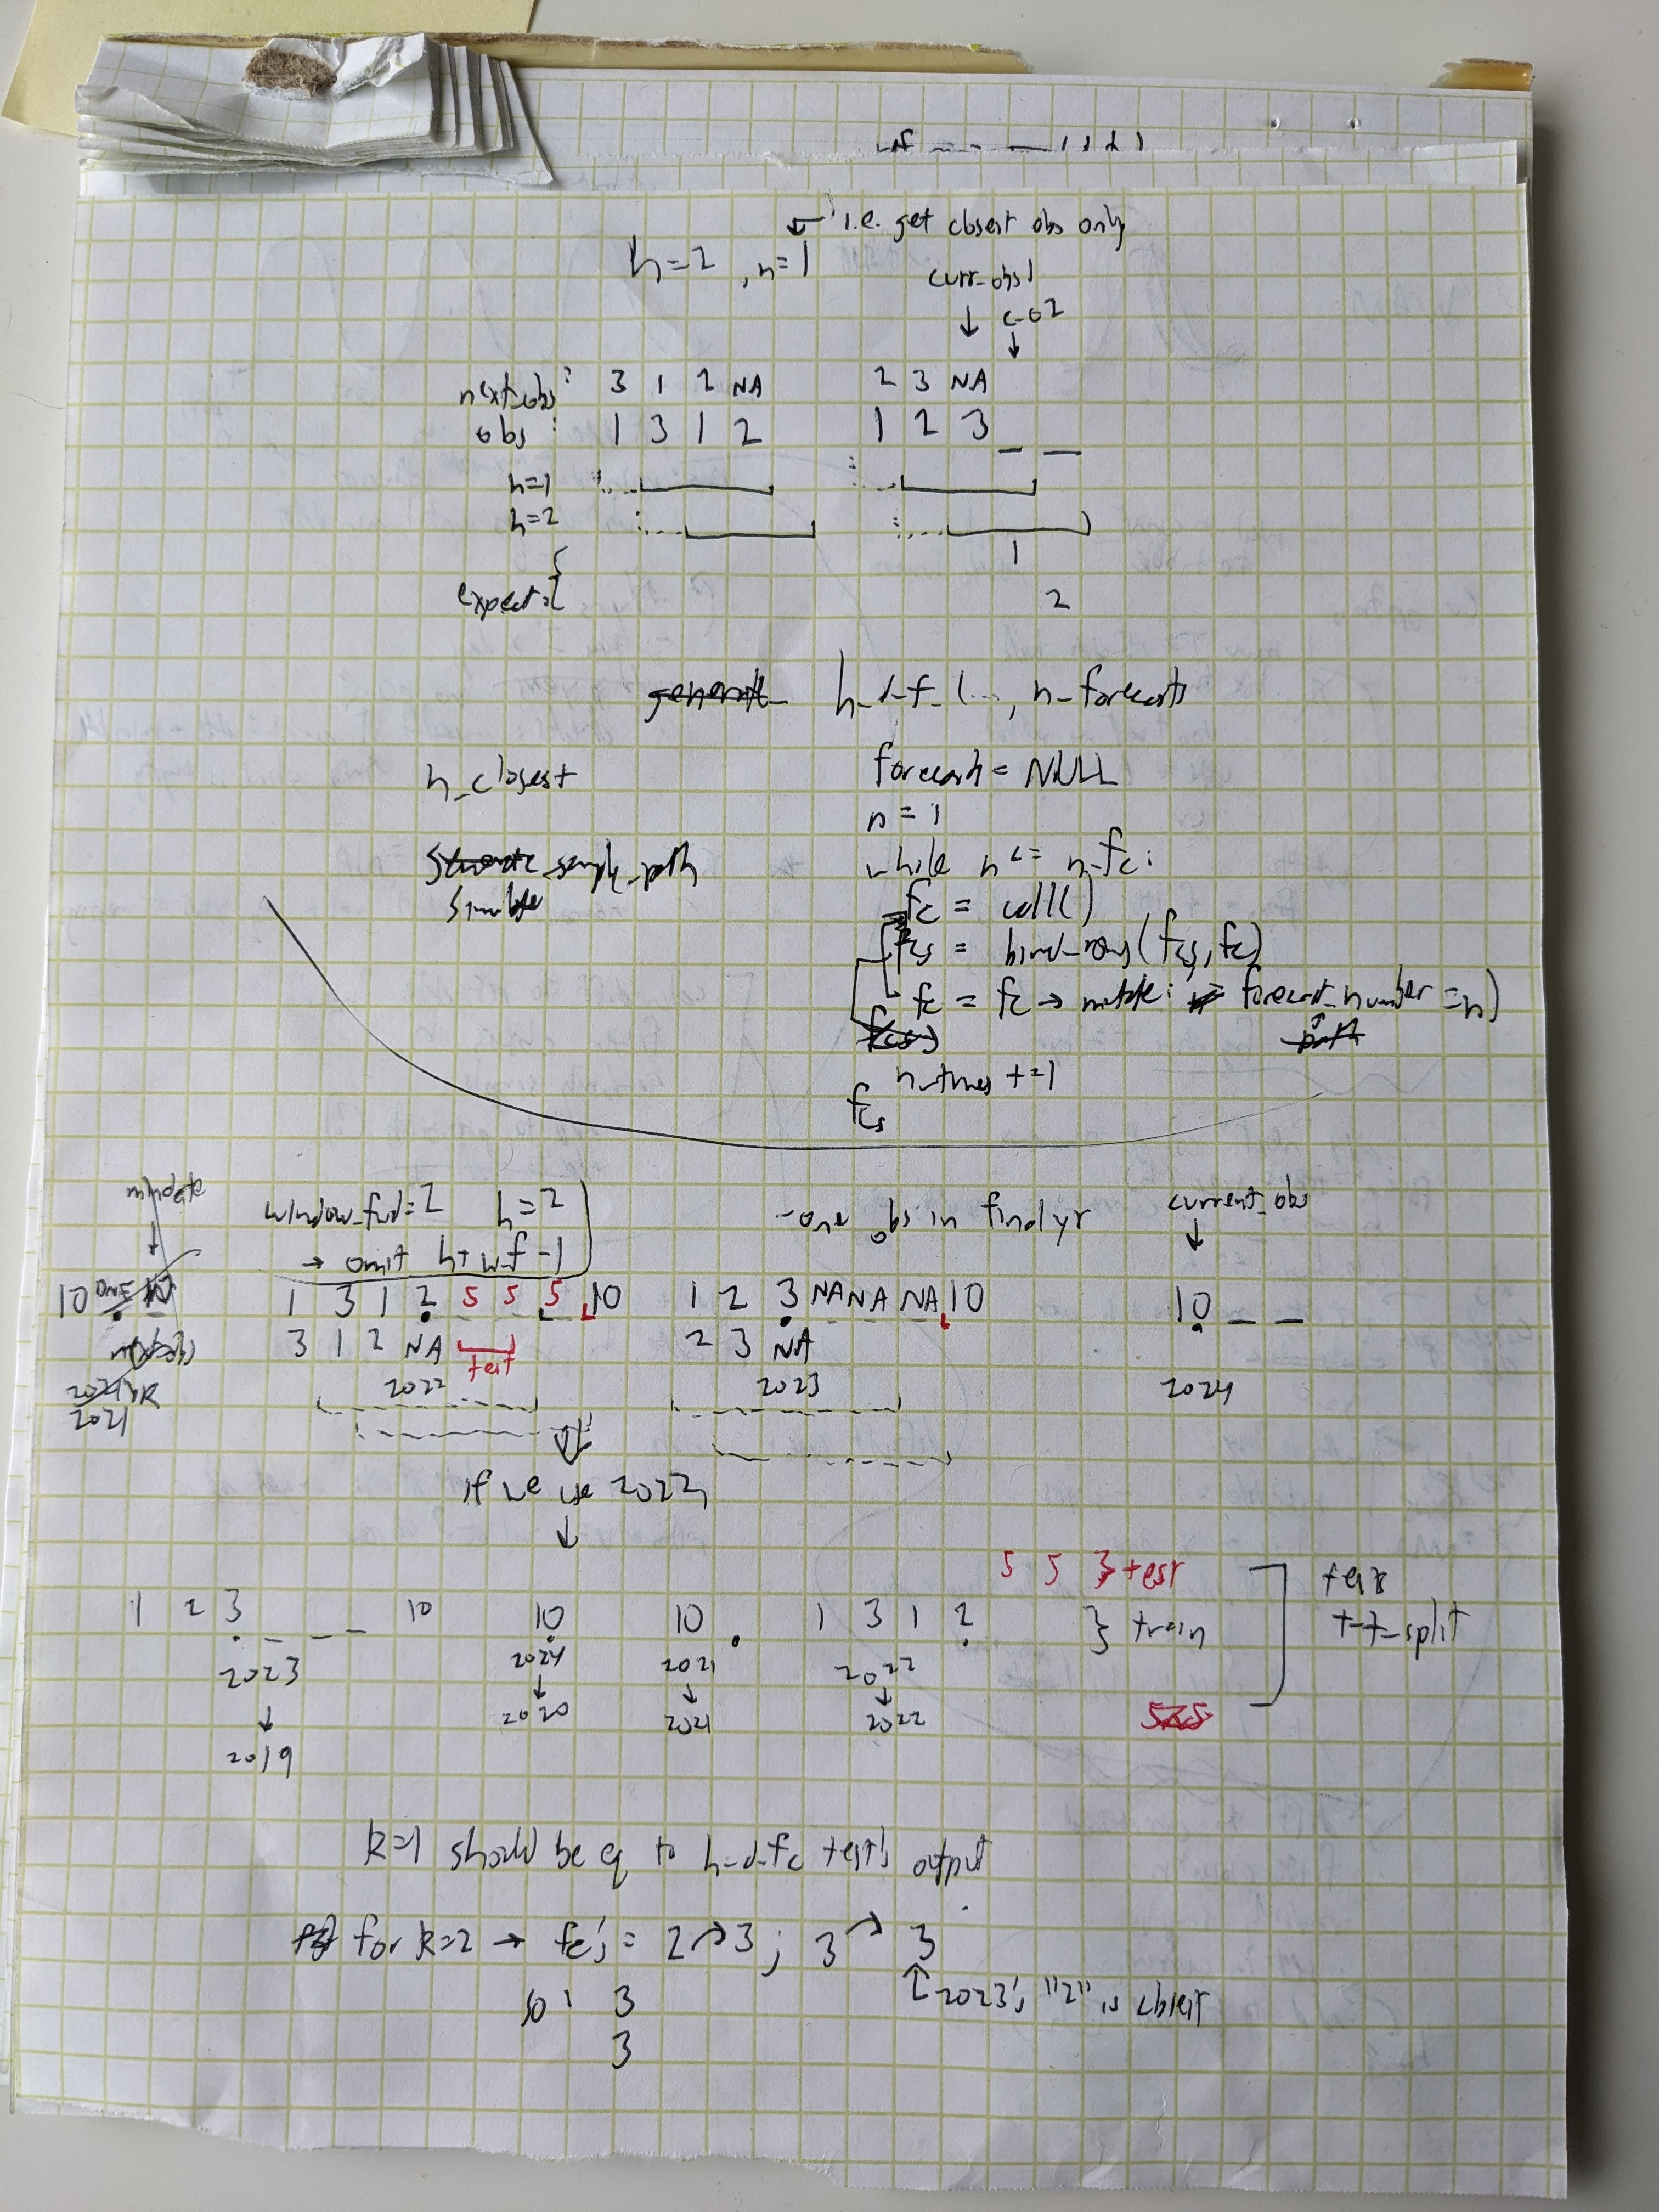 i.e. get closest obs only
h=2 , n=1
curr_obs1
c_o2
next_obs : 3 1 2 NA 2 3 NA
obs : 1 3 1 2 1 2 3 _ _
h=1
h=2
1
expect: 2
generate_ h_d_f_(..., n_forecasts
n_closest forecasts = NULL
n = 1
sample_path while n <= n_fc:
simulate fc = call()
fcs = bind_rows(fcs, fc)
fc = fc → mutate: forecast_number = n)
path
n_times += 1
fcs
mindate
window_fwd=2 h=2 -one obs in final yr current_obs
→ omit h+w_f-1
10 ONE 1 3 1 2 5 5 5 10 1 2 3 NA NA NA 10 10 _ _
next_obs 3 1 2 NA test 2 3 NA
2022 2023 2024
2021
if we use 2022,
5 5 } test
1 2 3 _ _ _ 10 10 10 1 3 1 2 } train
t_t_split
2023 2024 2021 2022
2019 2020 2021 2022
k=1 should be eq to h_d_fc test's output
for k=2 → fc's = 2→3; 3→3
2023's "2" is closest
so: 3
3